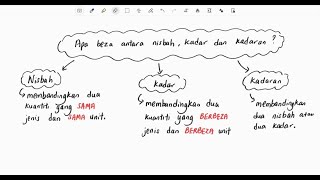 Apa beza antara nisbah, kadar dan kadaran?
Nisbah
membandingkan dua
kuantiti yang SAMA
jenis dan SAMA unit.
kadar
membandingkan dua
kuantiti yang BERBEZA
jenis dan BERBEZA unit
kadaran
membandingkan
dua nisbah atau
dua kadar.